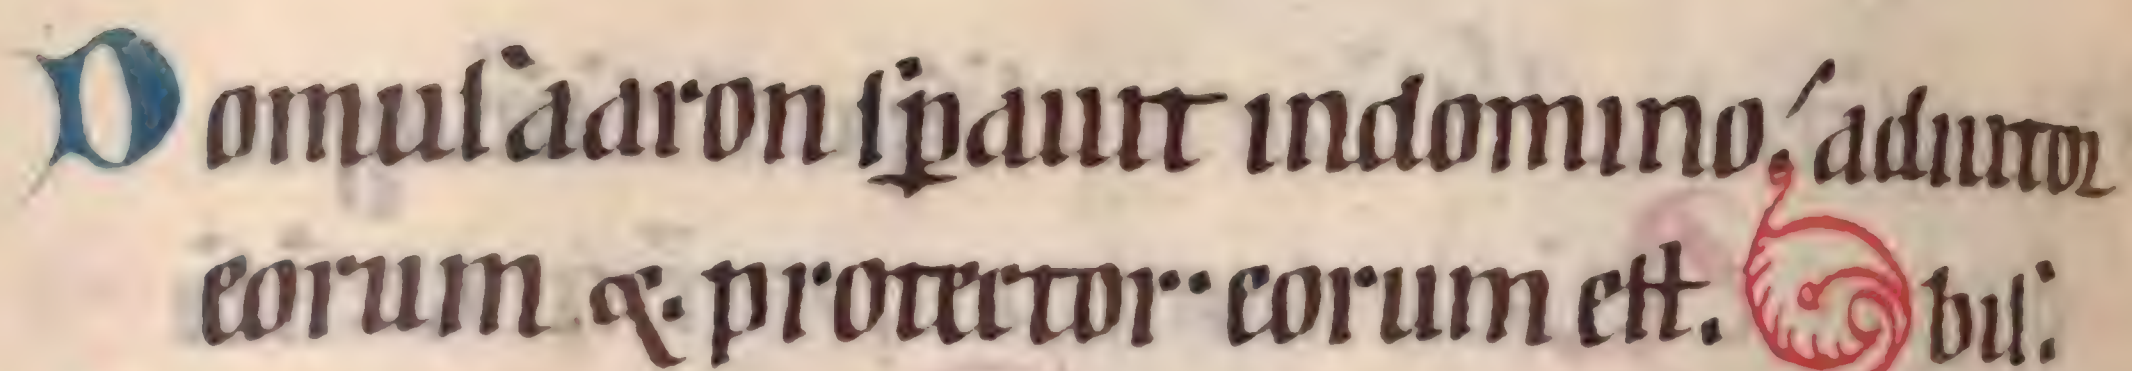 Domuſ aaron ſꝑauit indomino. adiutor
eorum &. protector eorum eſt. buſ.